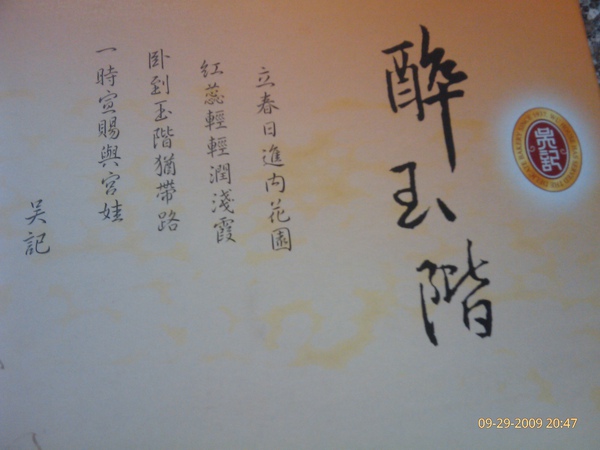 醉玉階
立春日進內花園
紅蕊輕輕潤淺霞
卧到玉階猶帶路
一時宣賜與宮娃
吳記
吳記
09-29-2009 20:47